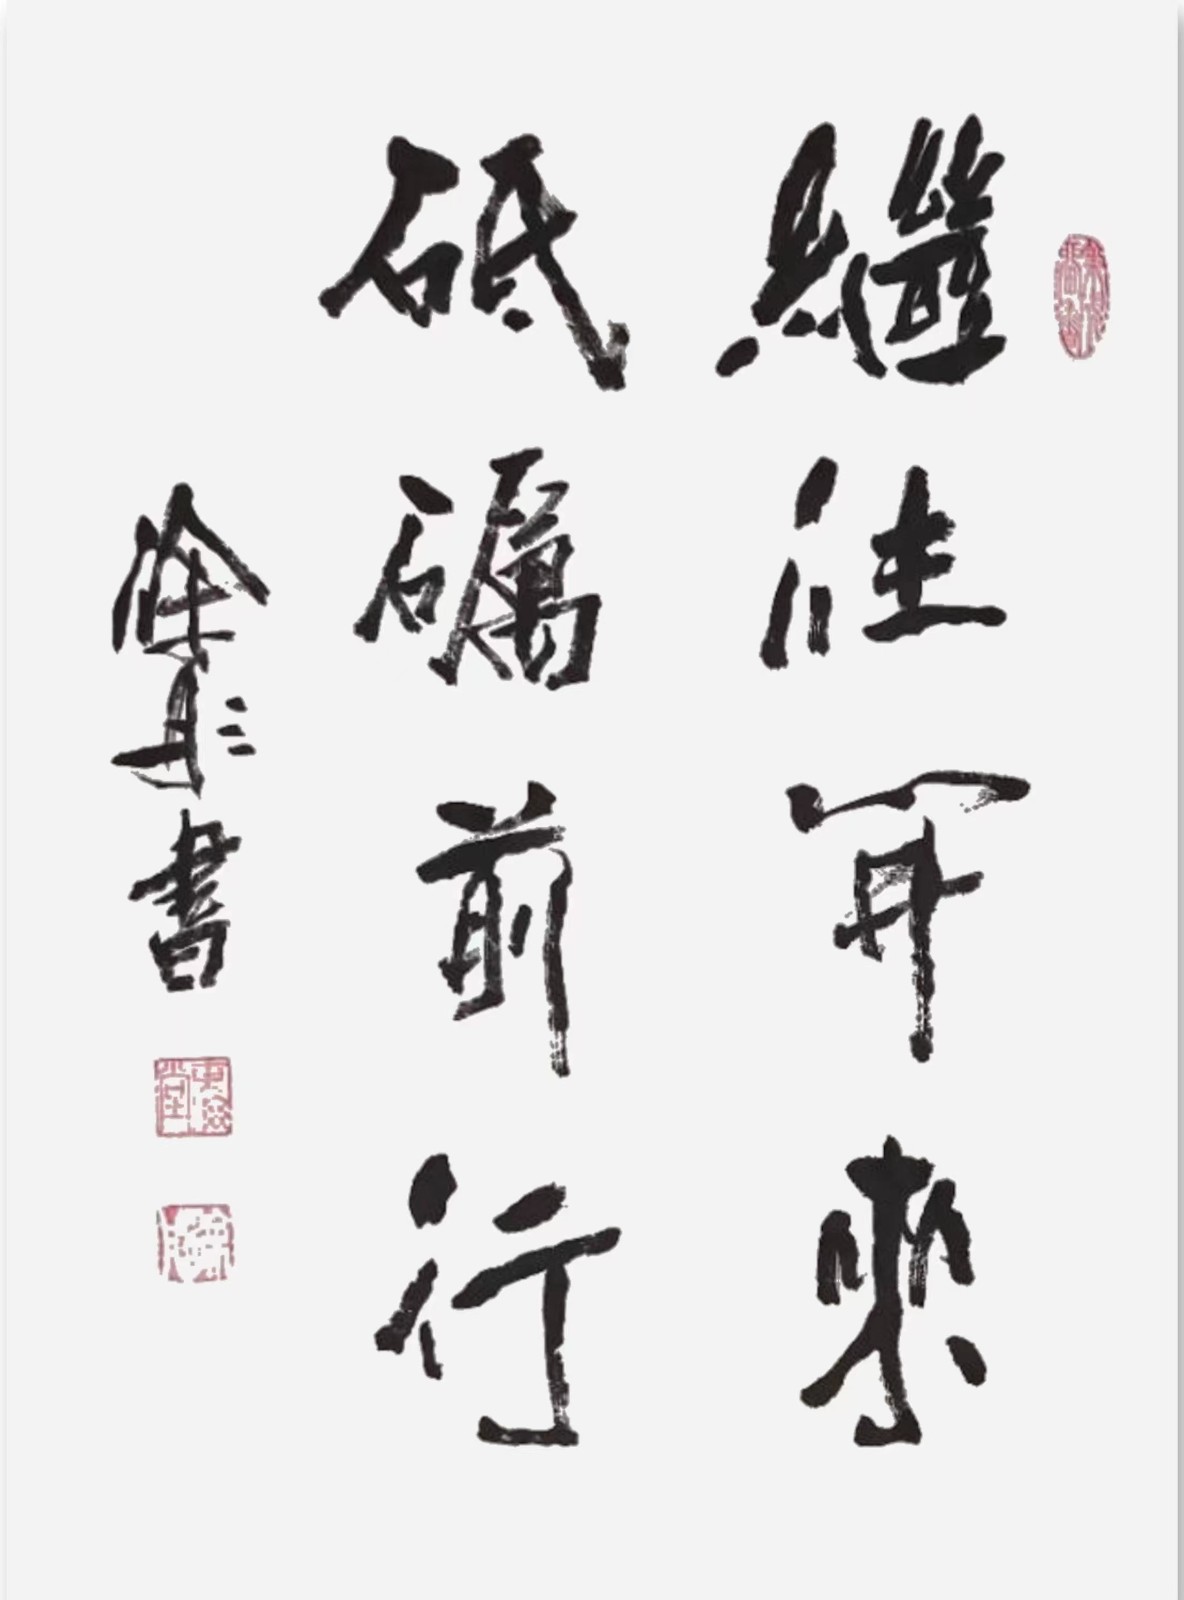 繼往開來
砥礪前行
書